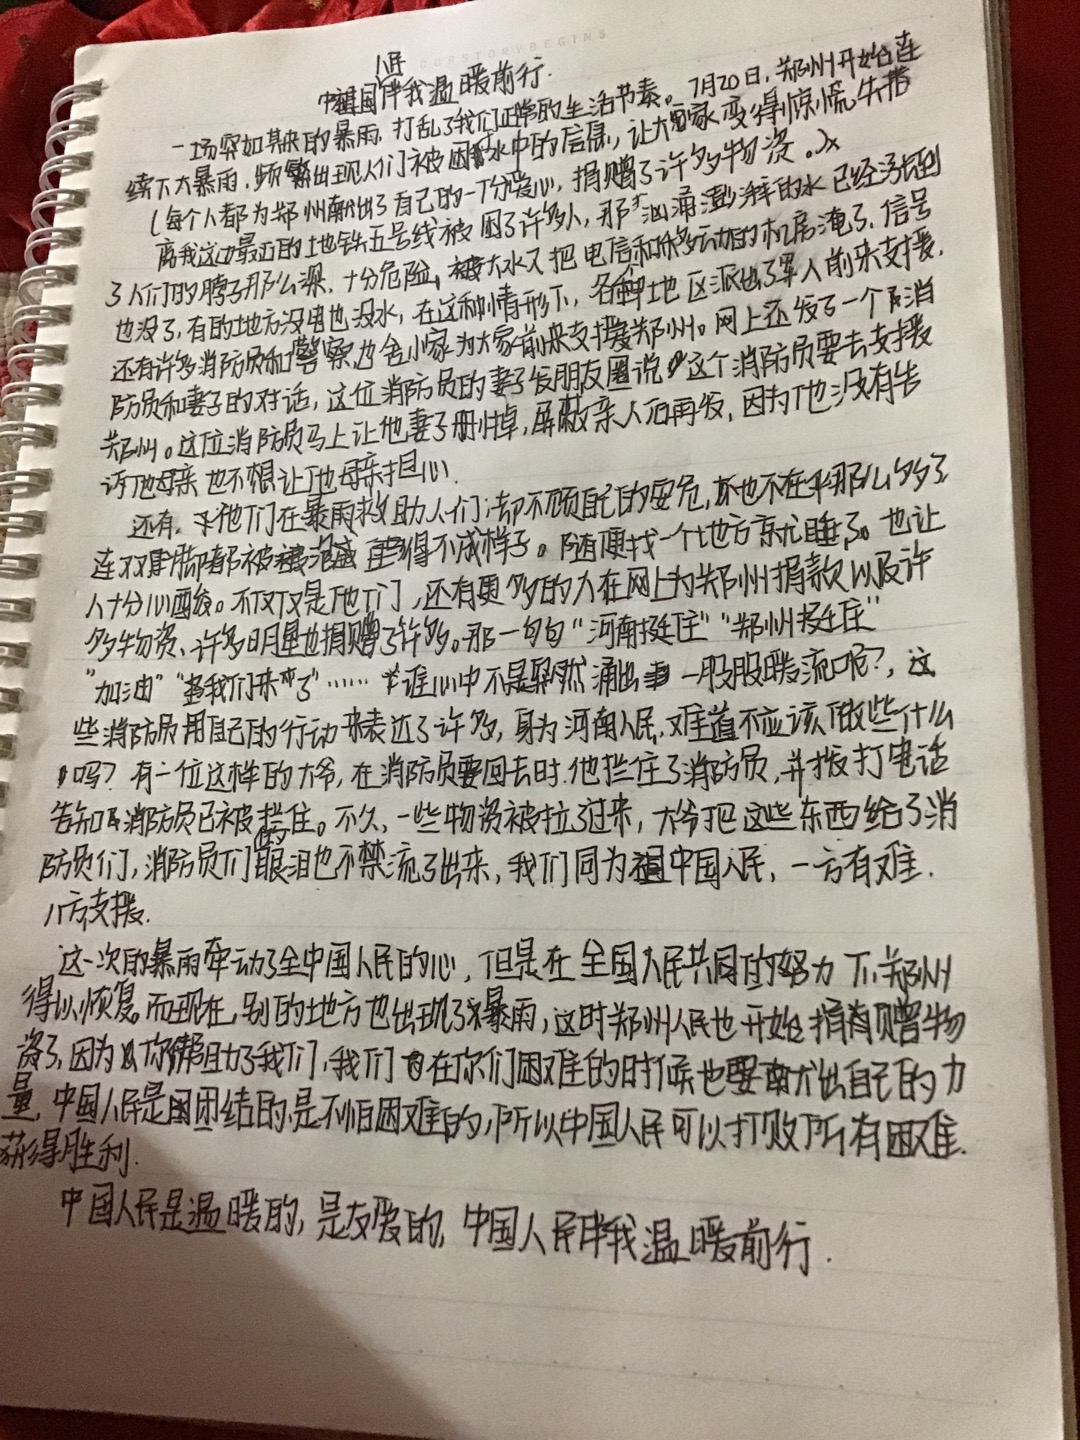 OUR STORY BEGINS
中国人民伴我温暖前行.
一场突如其来的暴雨,打乱了我们正常的生活节奏。7月20日,郑州开始连
续下大暴雨,频繁出现人们被困水中的信息,让大家变得惊慌失措
(每个人都为郑州献出了自己的一份爱心,捐赠了许多物资。)
离我这边最近的地铁五号线被困了许多人,那汹涌澎湃的水已经涨到
了人们的脖子那么深,十分危险,大水又把电信和移动的机房淹了,信号
也没了,有的地方没电也没水,在这种情形下,各种地区派出了军人前来支援,
还有许多消防员和警察也舍小家为大家前来支援郑州。网上还发了一个消
防员和妻子的对话,这位消防员的妻子发朋友圈说这个消防员要去支援
郑州。这位消防员马上让他妻子删掉,屏蔽亲人后再发,因为他没有告
诉他母亲也不想让他母亲担心.
还有,他们在暴雨救助人们,却不顾自己的安危,也不在乎那么多了
连双脚都被泡得不成样子。随便找一个地方就睡了。也让
人十分心酸。不仅仅是他们,还有更多的人在网上为郑州捐款以及许
多物资、许多明星也捐赠了许多。那一句句“河南挺住”“郑州挺住”
“加油”“我们来了”……谁心中不是突然涌出一股股暖流呢?,这
些消防员用自己的行动来表达了许多,身为河南人民,难道不应该做些什么
吗?有一位这样的大爷,在消防员要回去时.他拦住了消防员,并拨打电话
告知消防员已被拦住。不久,一些物资被拉了过来,大爷把这些东西给了消
防员们,消防员们的眼泪也不禁流了出来,我们同为中国人民,一方有难.
八方支援.
这一次的暴雨牵动了全中国人民的心,但是在全国人民共同的努力下,郑州
得以恢复。而现在,别的地方也出现了暴雨,这时郑州人民也开始捐赠物
资了,因为你帮助了我们,我们在你们困难的时候也要献出自己的力
量,中国人民是团结的,是不怕困难的,所以中国人民可以打败所有困难.
获得胜利.
中国人民是温暖的,是友爱的,中国人民伴我温暖前行.